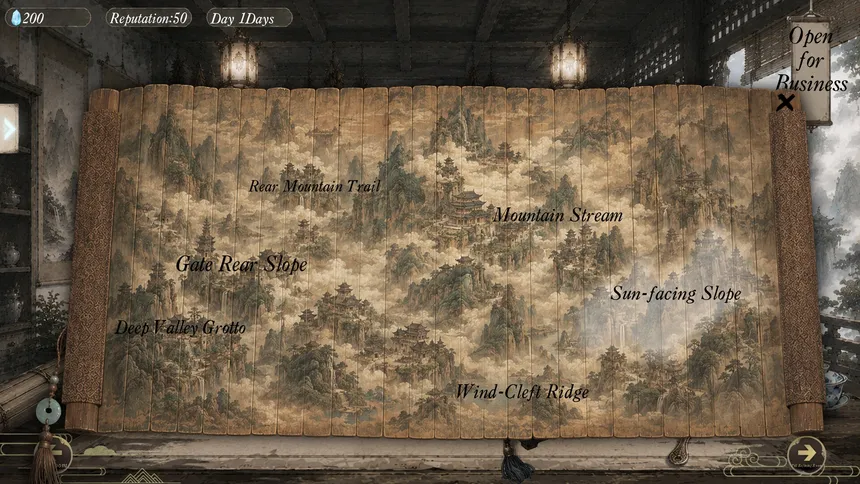 200
Reputation:50
Day 1Days
Open
for
Business
Rear Mountain Trail
Mountain Stream
Gate Rear Slope
Sun-facing Slope
Deep Valley Grotto
Wind-Cleft Ridge